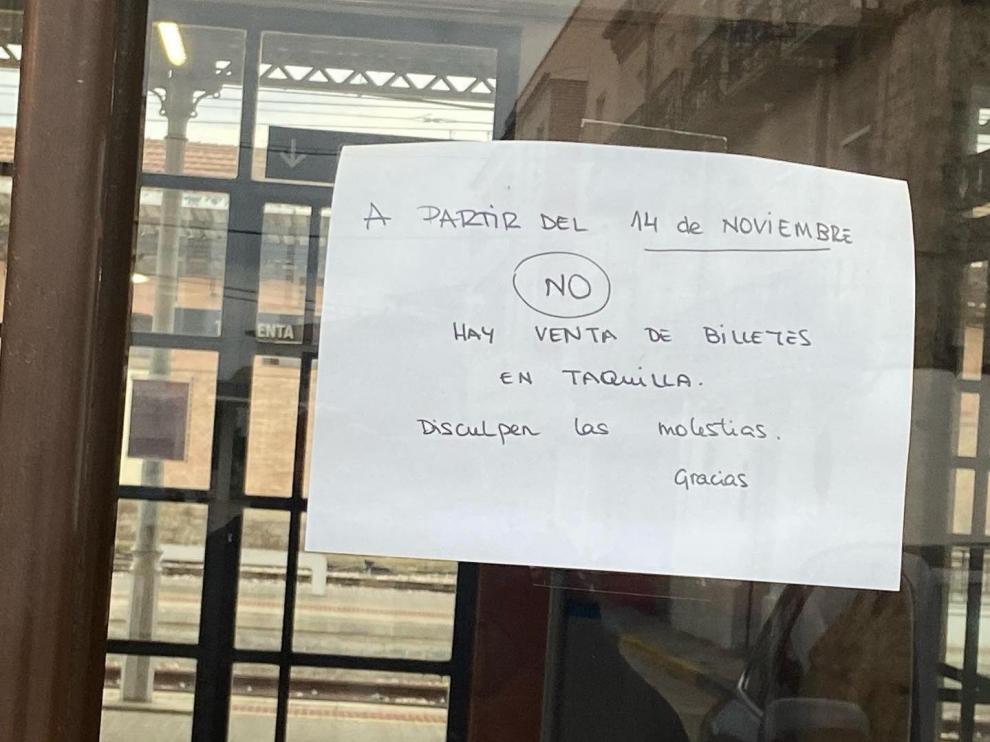 A PARTIR DEL 14 de NOVIEMBRE
NO
HAY VENTA DE BILLETES
EN TAQUILLA.
Disculpen las molestias.
Gracias
ENTA